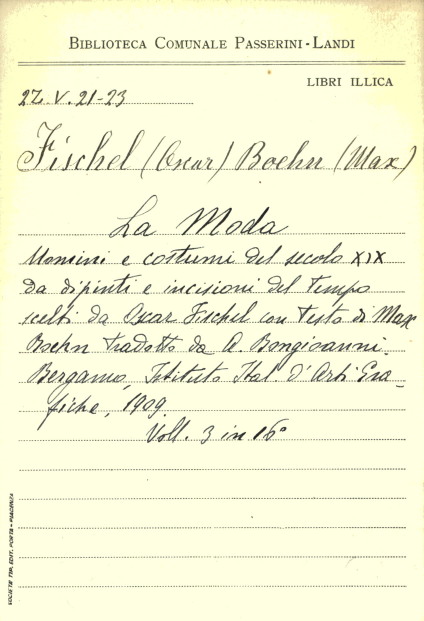 BIBLIOTECA COMUNALE PASSERINI-LANDI
LIBRI ILLICA
2Z. V. 21-23
Fischel (Oscar) Boehn (Max)
La Moda
Uomini e costumi del secolo XIX
da dipinti e incisioni del tempo
scelti da Oscar Fischel con testo di Max
Boehn tradotto da A. Bongioanni.
Bergamo, Istituto Ital. d'Arti Gra-
fiche, 1909.
Voll. 3 in 16°
SOCIETÀ TIP. EDIT. PORTA - PIACENZA